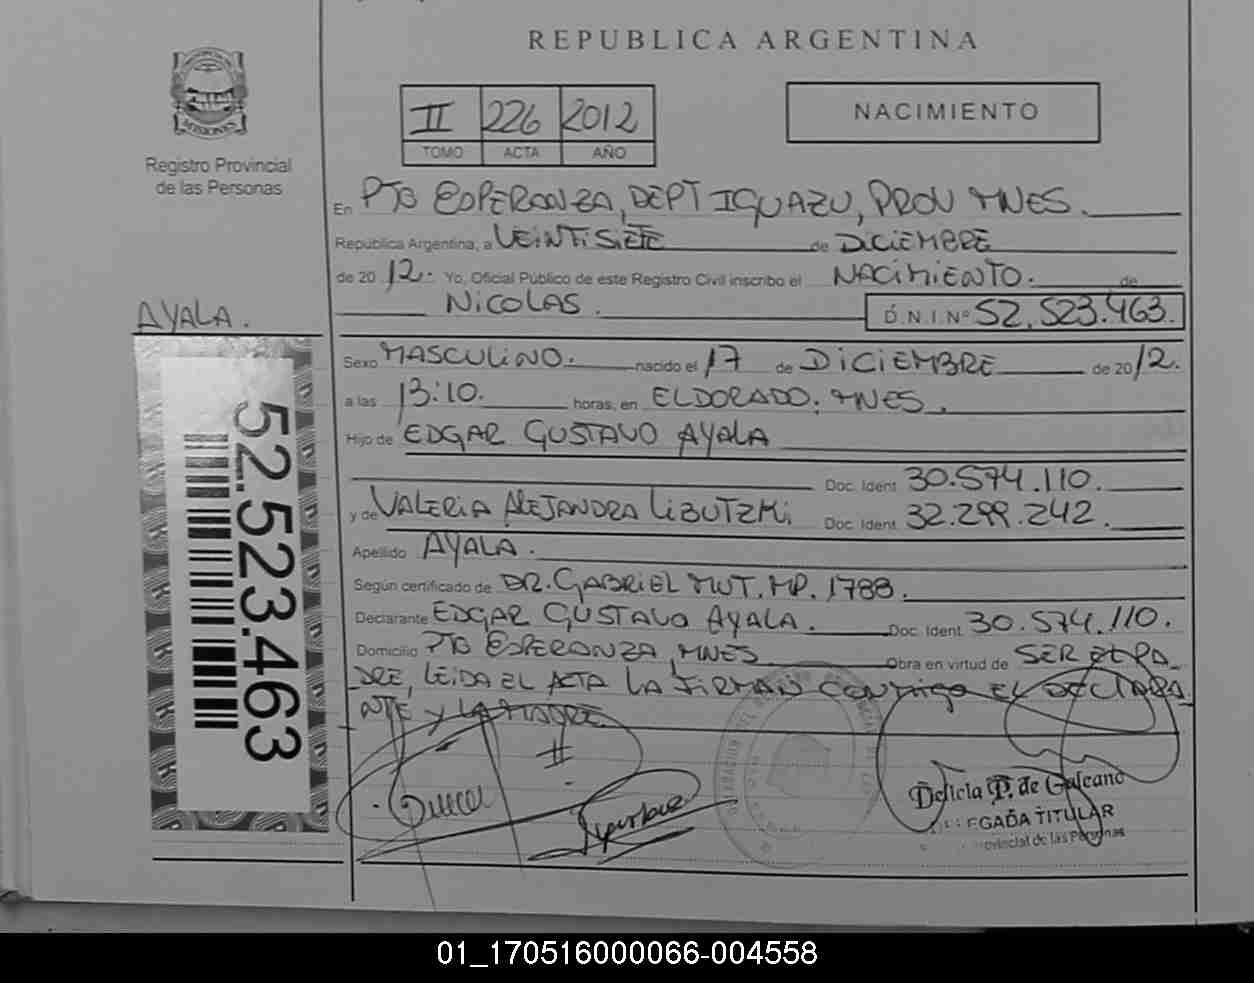 REPUBLICA ARGENTINA
MISIONES
Registro Provincial
de las Personas
II 226 2012
TOMO ACTA AÑO
NACIMIENTO
En PTO ESPERANZA, DEPT IGUAZU, PROV MNES.
República Argentina, a VEINTISIETE de DICIEMBRE
de 20 12. Yo, Oficial Público de este Registro Civil inscribo el NACIMIENTO. de
NICOLAS. D.N.I.Nº 52.523.463.
AYALA.
52.523.463
Sexo MASCULINO. nacido el 17 de DICIEMBRE de 2012.
a las 13:10. horas, en ELDORADO, MNES.
Hijo de EDGAR GUSTAVO AYALA
Doc. Ident. 30.574.110.
y de VALERIA ALEJANDRA LIBUTZKI Doc. Ident. 32.299.242.
Apellido AYALA.
Según certificado de DR. GABRIEL MUT. MP. 1788.
Declarante EDGAR GUSTAVO AYALA. Doc. Ident. 30.574.110.
Domicilio PTO ESPERANZA, MNES Obra en virtud de SER EL PA
DRE, LEIDA EL ACTA LA FIRMAN CONMIGO EL DECLARA
NTE Y LA MADRE
Delicia P. de Galeano
TITULAR
de las Personas
01_170516000066-004558